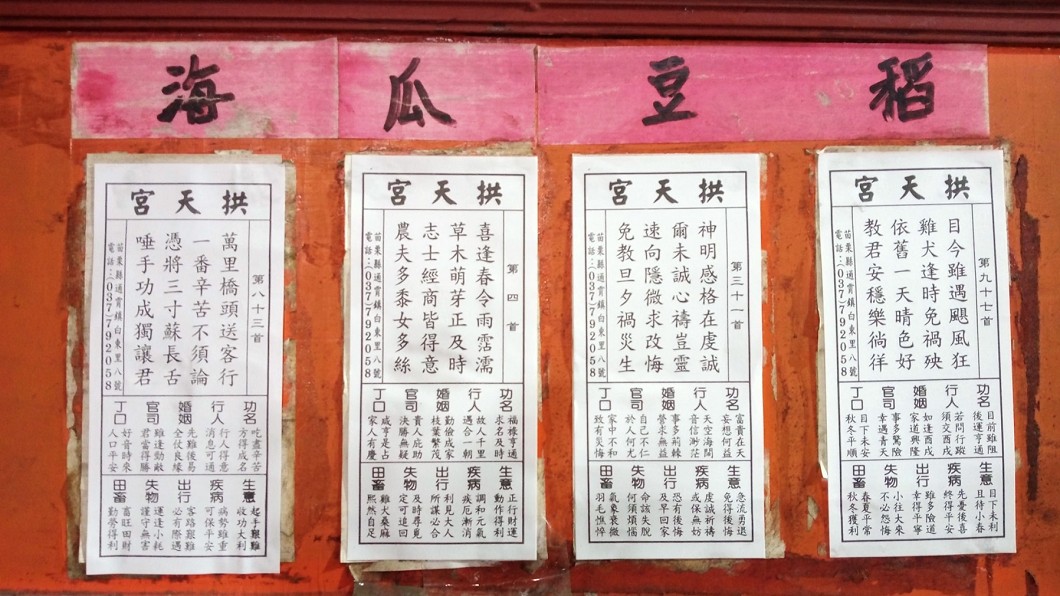 稻
豆
瓜
海
拱天宮
第九十七首
目今雖遇颶風狂
雞犬逢時免禍殃
依舊一天晴色好
教君安穩樂徜徉
苗栗縣通霄鎮白東里八號
電話：(037)792058
功名
目前雖阻
後運亨通
行人
若問行蹤
須交酉戌
婚姻
如逢酉戌
家道興隆
官司
事多驚險
幸遇青天
丁口
目下未安
秋冬平順
生意
目下未利
且待小春
疾病
先憂後喜
終得平安
出行
雖多險道
幸得平寧
失物
小往大來
不必怨悔
田畜
春夏平常
秋冬獲利
拱天宮
第三十一首
神明感格在虔誠
爾未誠心禱豈靈
速向隱微求改悔
免教旦夕禍災生
苗栗縣通霄鎮白東里八號
電話：(037)792058
功名
富貴在天
妄想何益
行人
天空海闊
音信渺茫
婚姻
事多荊棘
營求無益
官司
自己不仁
於人何尤
丁口
家中不和
致有災悔
生意
急流勇退
免得後悔
疾病
虔誠祈禱
或保無妨
出行
恐有後悔
及早回家
失物
命該失脫
何須煩惱
田畜
氣象衰微
羽毛憔悴
拱天宮
第四首
喜逢春令雨霑濡
草木萌芽正及時
志士經商皆得意
農夫多黍女多絲
苗栗縣通霄鎮白東里八號
電話：(037)792058
功名
福祿亨通
求名及時
行人
故人千里
遇合一朝
婚姻
勤儉成家
枝葉繁茂
官司
貴人庇助
決勝無疑
丁口
咸亨是占
家人有慶
生意
正行財運
收功得利
疾病
調和元氣
疾厄漸消
出行
利見大人
所謀必合
失物
及時尋覓
定可追回
田畜
雞犬桑麻
熙然自足
拱天宮
第八十三首
萬里橋頭送客行
一番辛苦不須論
憑將三寸蘇長舌
唾手功成獨讓君
苗栗縣通霄鎮白東里八號
電話：(037)792058
功名
吃盡辛苦
方得成名
行人
行人得意
消息可通
婚姻
先難後易
全仗良緣
官司
雖逢勁敵
君當得勝
丁口
好音時來
人口平安
生意
起手艱難
收功大利
疾病
病勢雖重
可保平安
出行
客路艱難
必有際遇
失物
運逢小耗
謹守無害
田畜
畜旺田財
勤營得利